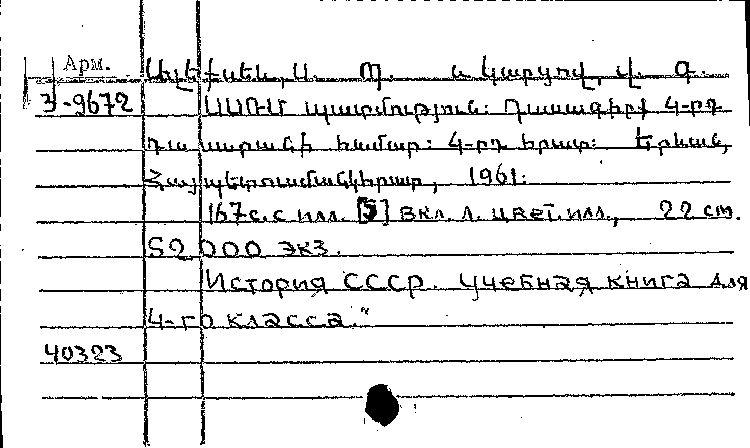 Арм. Ալեքսեև, Ս. Պ. և Կարցով, Վ. Գ.
3-9672 ՍՍՌՄ պատմություն: Դասագիրք 4-րդ
դասարանի համար: 4-րդ հրատ: Երևան,
Հայպետուսմանկհրատ, 1961.
167 с. с илл. [5] вкл. л. цвет. илл., 22 см.
52 000 экз.
История СССР. Учебная книга для
4-го класса."
40323